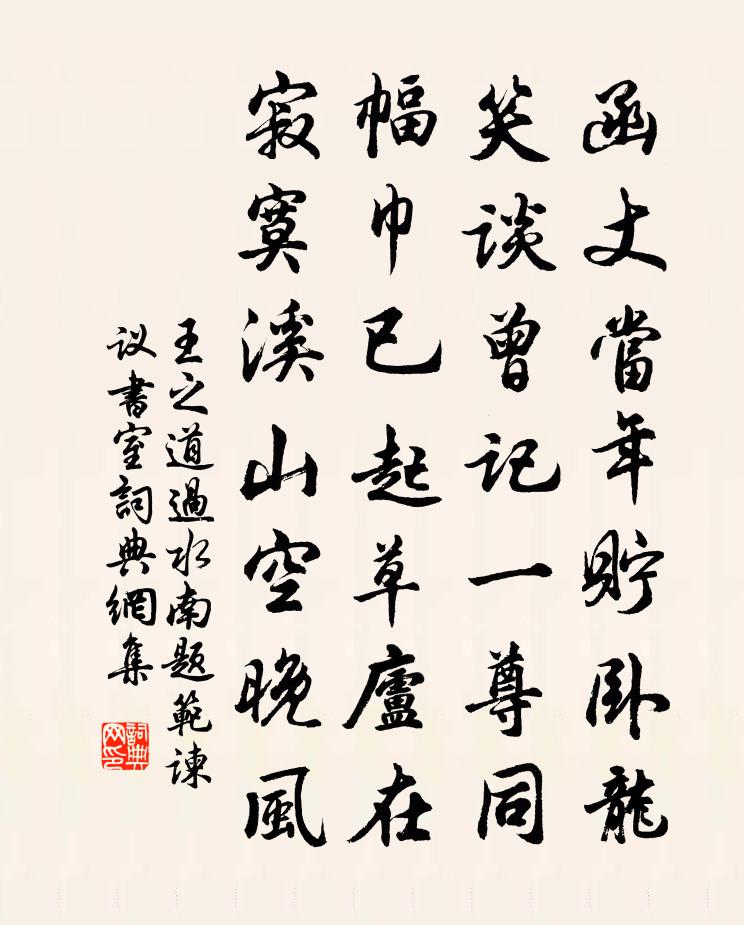 函丈當年貯卧龍
笑談曾記一尊同
幅巾已起草廬在
寂寞溪山空晚風
王之道過水南題範諫
议書室詞典網集
詞典网印